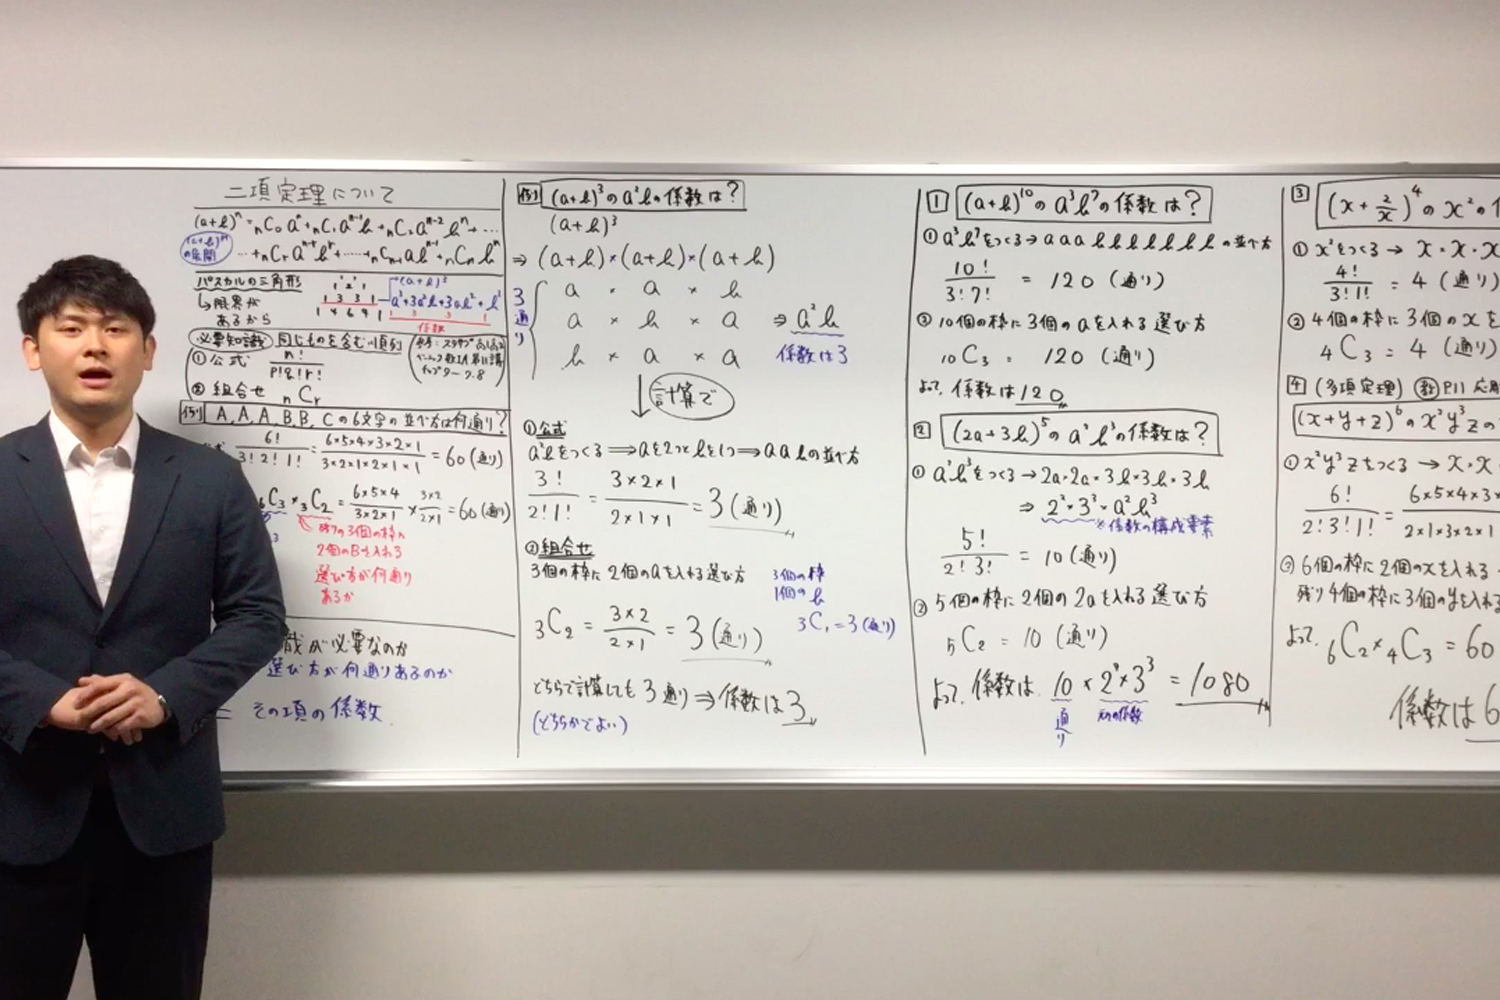 二項定理について
(a+b)ⁿ = ₙC₀aⁿ+ₙC₁aⁿ⁻¹b+ₙC₂aⁿ⁻²bⁿ+…
…+ₙCᵣaⁿ⁻ʳbʳ+…+ₙCₙ₋₁abⁿ⁻¹+ₙCₙbⁿ
(a+b)ⁿの展開
パスカルの三角形
↳限界が
あるから
1 2 1
1 3 3 1
1 4 6 4 1
(a+b)³
a³+3a²b+3ab²+b³
1 3 3 1
係数
必要知識 同じものを含む順列
①公式 n!/p!q!r!
②組合せ ₙCᵣ
例 A, A, A, B, B, Cの6文字の並べ方は何通り?
6!/3!2!1! = 6×5×4×3×2×1/3×2×1×2×1×1 = 60(通り)
₆C₃×₃C₂ = 6×5×4/3×2×1 × 3×2/2×1 = 60(通り)
残りの3個の枠に
2個のBを入れる
選び方が何通り
あるか
識が必要なのか
選び方が何通りあるのか
= その項の係数
例 (a+b)³のa²bの係数は?
(a+b)³
⇒(a+b)×(a+b)×(a+b)
3通り
a × a × b
a × b × a ⇒ a²b
b × a × a
係数は3
↓計算で
①公式
a²bをつくる⇒aを2つとbを1つ⇒aabの並べ方
3!/2!1! = 3×2×1/2×1×1 = 3(通り)
②組合せ
3個の枠に2個のaを入れる選び方
₃C₂ = 3×2/2×1 = 3(通り)
3個の枠
1個のb
₃C₁=3(通り)
どちらで計算しても3通り⇒係数は3
(どちらかでよい)
1 (a+b)¹⁰のa³b⁷の係数は?
①a³b⁷をつくる→aaabbbbbbbの並べ方
10!/3!7! = 120(通り)
②10個の枠に3個のaを入れる選び方
₁₀C₃ = 120(通り)
よって、係数は120
2 (2a+3b)⁵のa²b³の係数は?
①a²b³をつくる→2a・2a・3b・3b・3b
⇒2²・3³・a²b³
※係数の構成要素
5!/2!3! = 10(通り)
②5個の枠に2個の2aを入れる選び方
₅C₂ = 10(通り)
よって、係数は 10×2²×3³ = 1080
通り
元の係数
3 (x+2/x)⁴のx²の
①x²をつくる→x・x・x
4!/3!1! = 4(通り)
②4個の枠に3個のxを
₄C₃ = 4(通り)
4 (多項定理) 教P11 応用
(x+y+z)⁶のx²y³zの
①x²y³zをつくる→x・x・
6!/2!3!1! = 6×5×4×3×/2×1×3×2×1
②6個の枠に2個のxを入れる
残り4個の枠に3個のyを入れる
よって、₆C₂×₄C₃ = 60
係数は6